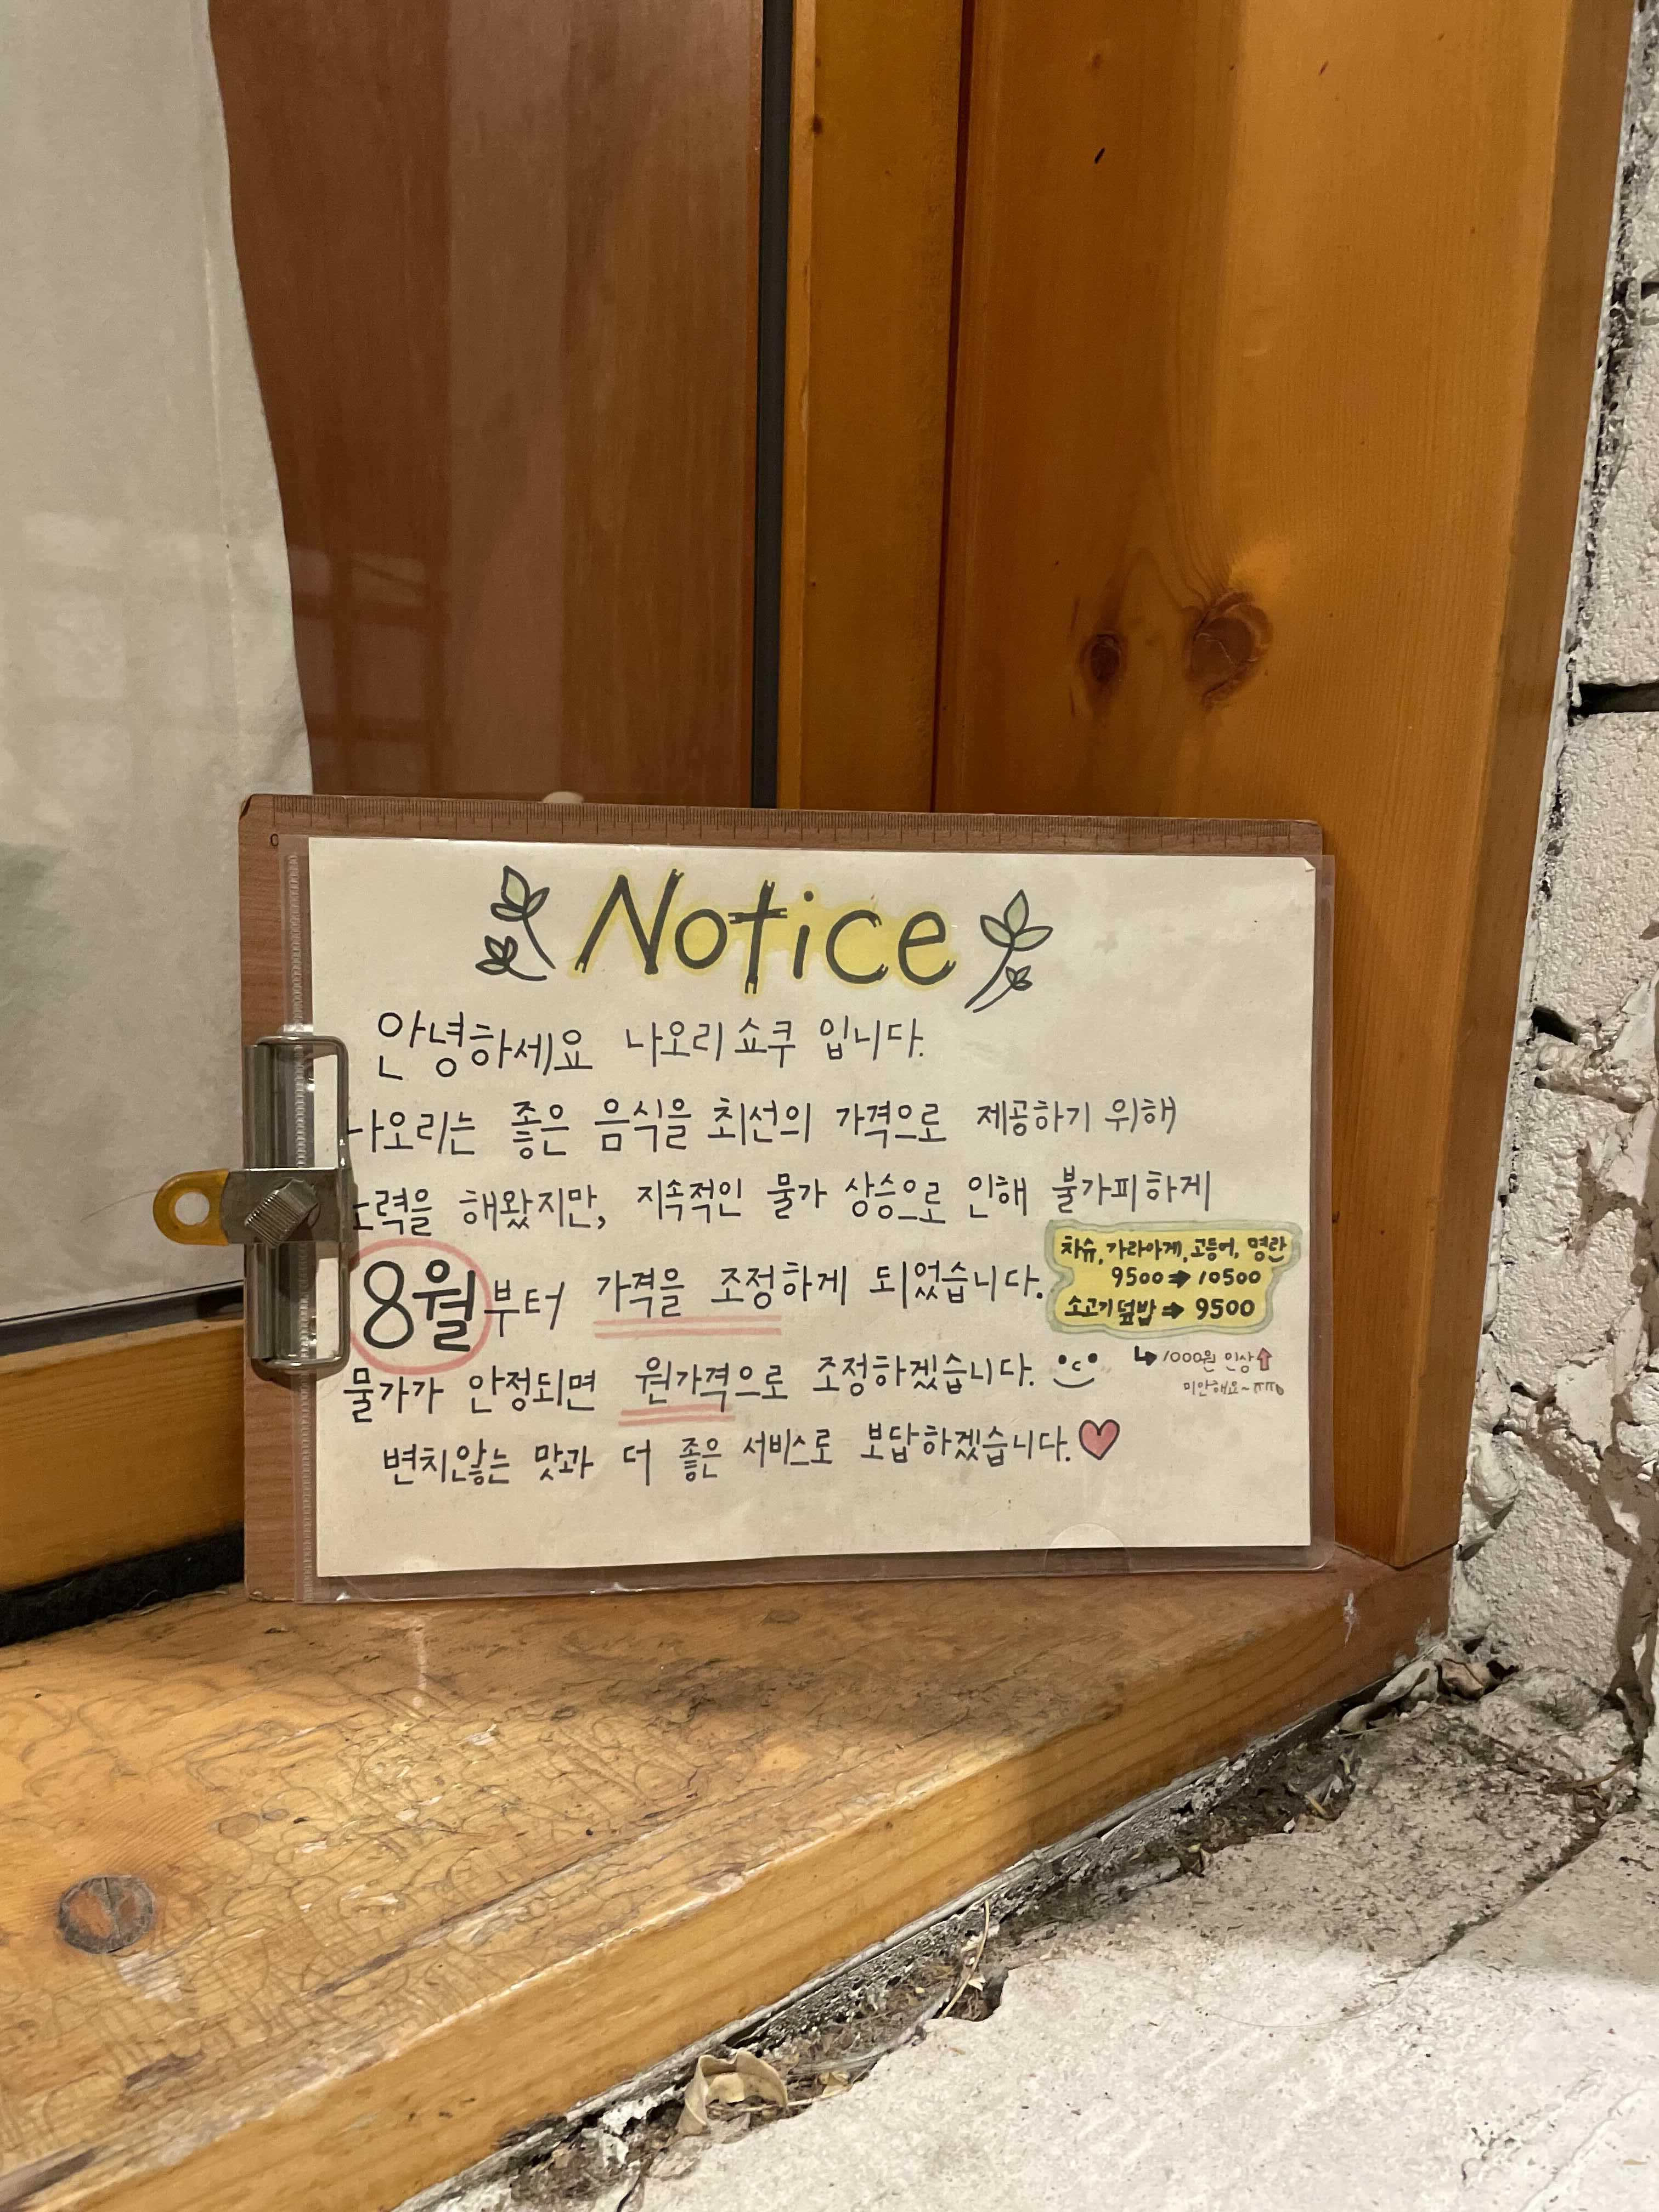 Notice
안녕하세요 나오리쇼쿠 입니다.
나오리는 좋은 음식을 최선의 가격으로 제공하기 위해
노력을 해왔지만, 지속적인 물가 상승으로 인해 불가피하게
8월부터 가격을 조정하게 되었습니다.
차슈, 가라아게, 고등어, 명란
9500➡10500
소고기덮밥➡9500
↳1000원 인상⇧
미안해요~ㅠㅠ
물가가 안정되면 원가격으로 조정하겠습니다.
변치않는 맛과 더 좋은 서비스로 보답하겠습니다.♥